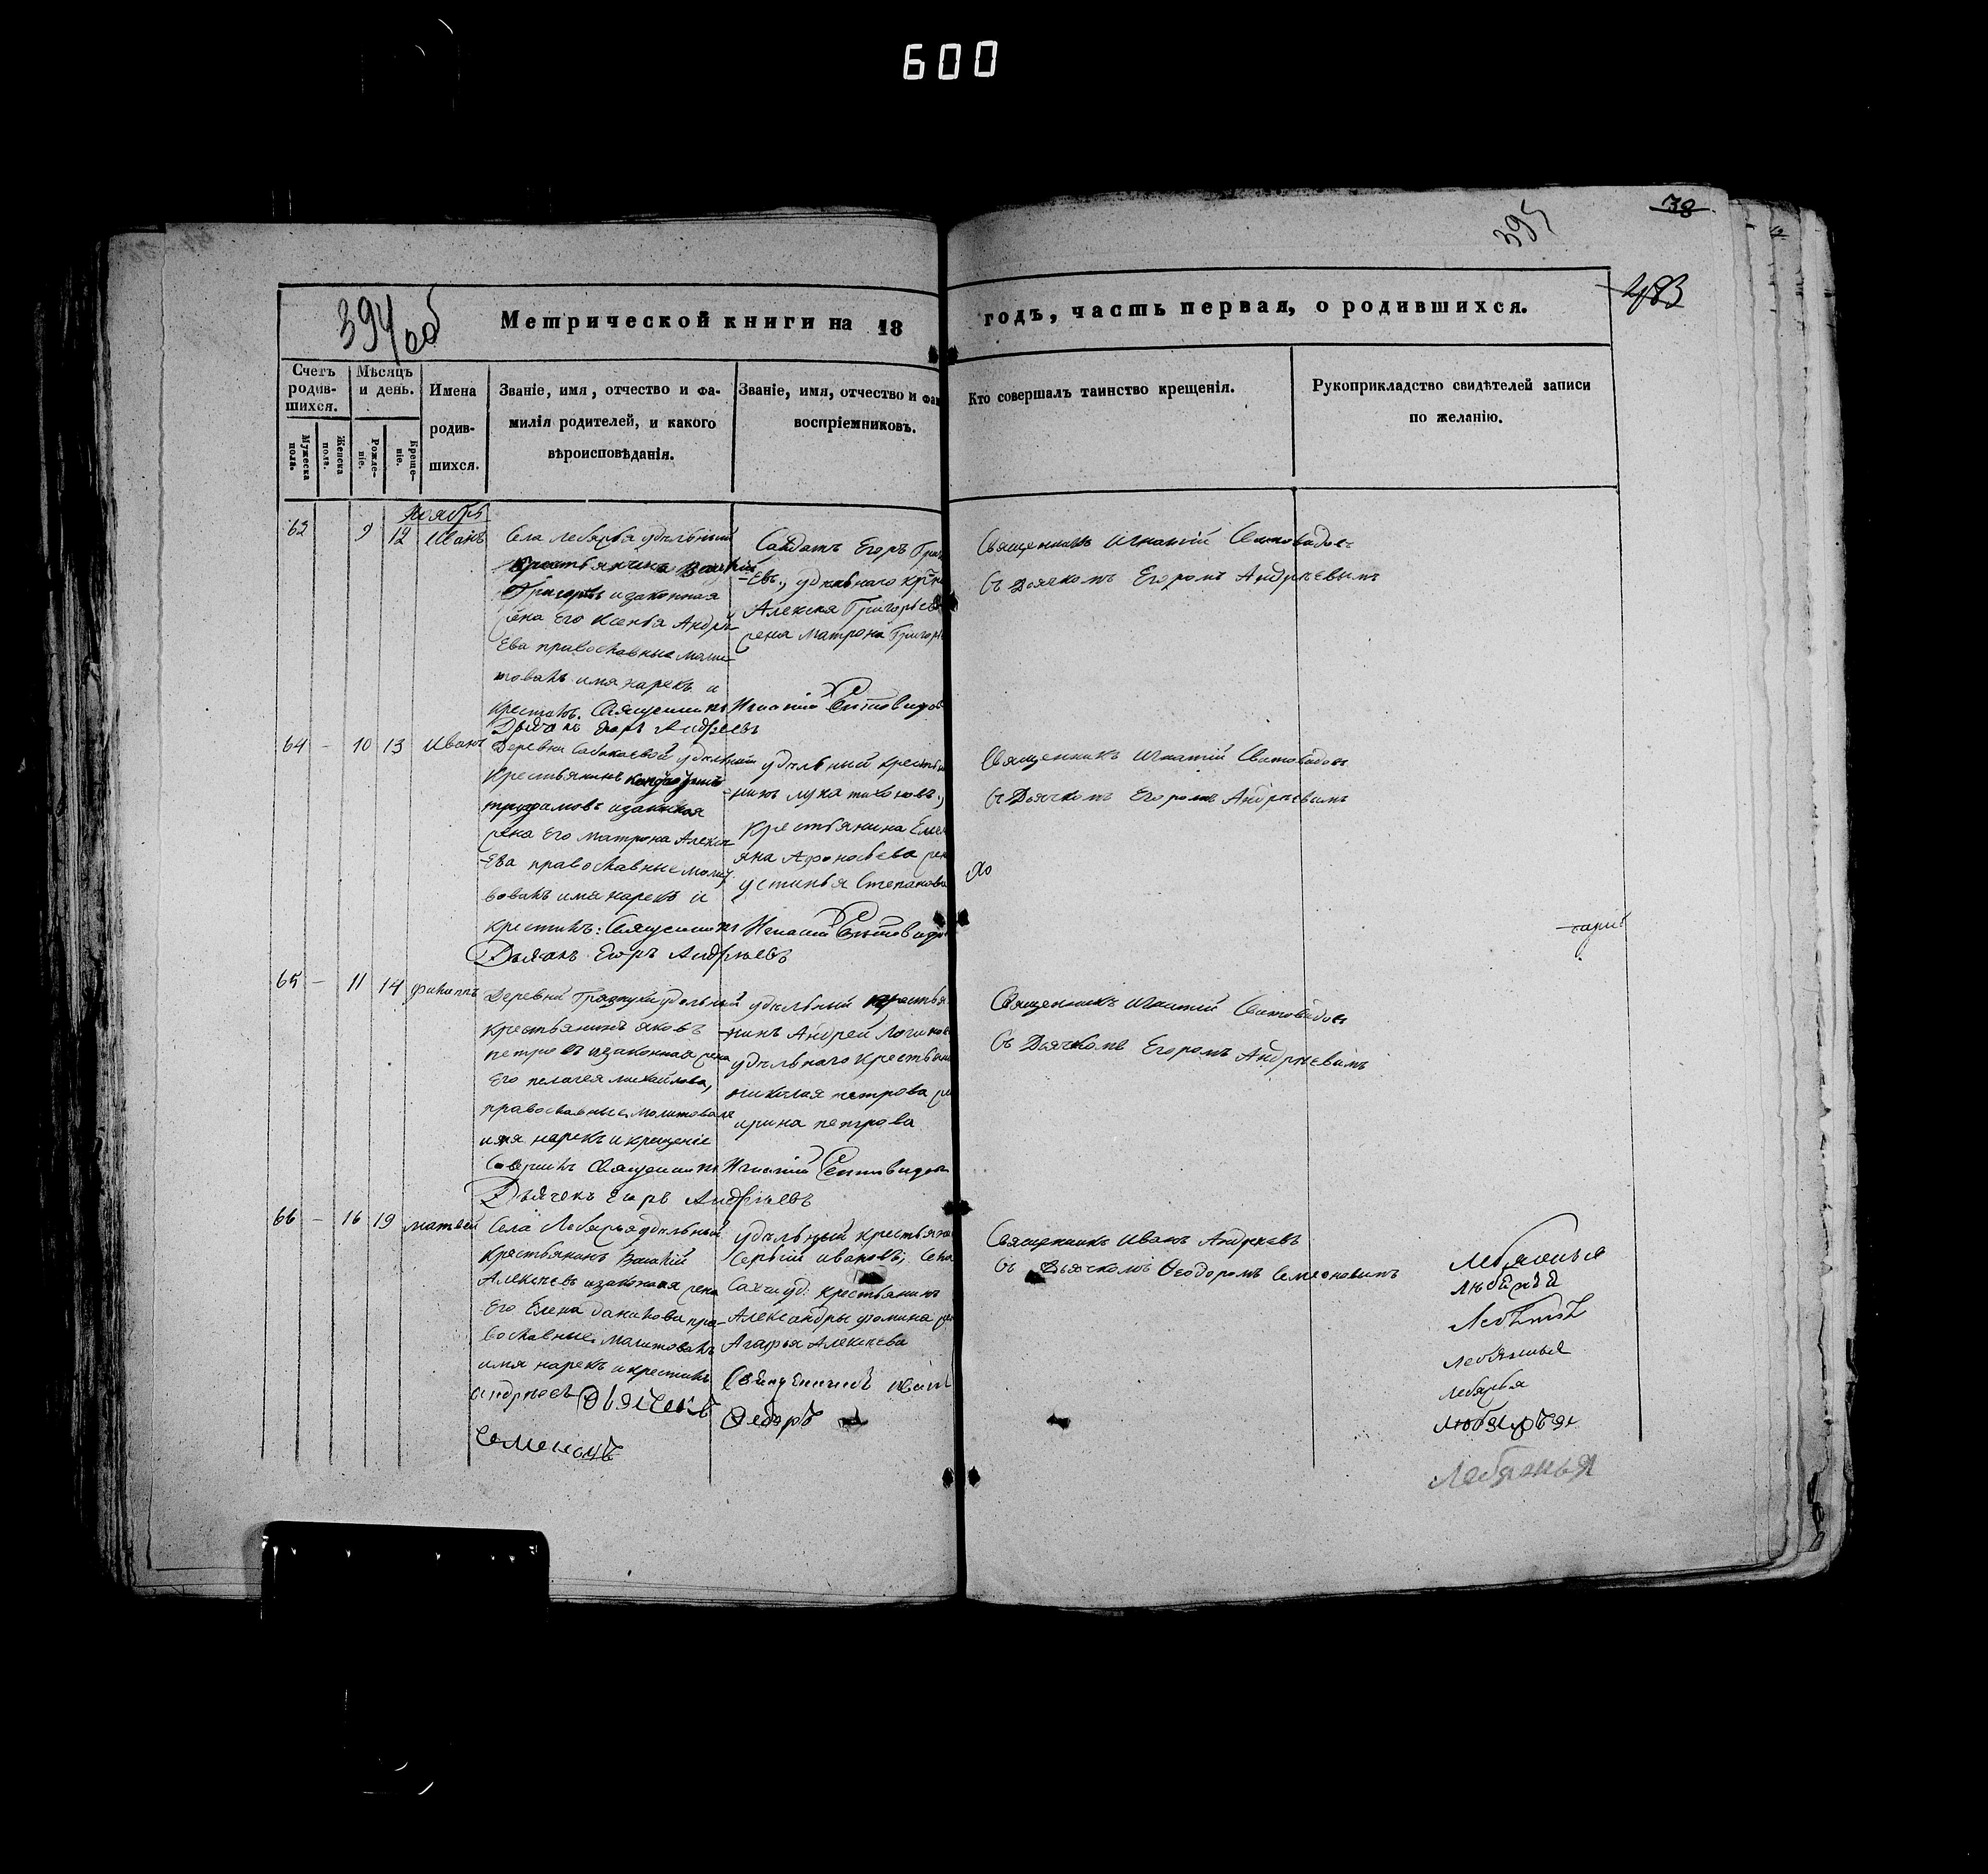 600
38
395
483
394 об
Метрической книги на 18 годъ, часть первая, о родившихся.
Счетъ родив-шихся.
Мужеска пола.
Женска пола.
Мѣсяцъ и день.
Рожде-ніе.
Креще-ніе.
Имена
родив-
шихся.
Званіе, имя, отчество и фа-
милія родителей, и какого
вѣроисповѣданія.
Званіе, имя, отчество и фам
воспріемниковъ.
Кто совершалъ таинство крещенія.
Рукоприкладство свидѣтелей записи
по желанію.
Ноябрь
63 9 12 Иванъ
Села Лебяжья удѣльный
крестьянинъ
Григорьевъ и законная
жена Его Ксенья Андрѣ-
Ева православные молит-
вовалъ имя нарекъ и
крестилъ: Священникъ Игнатій Святовидов
Дьячекъ Егоръ Андрѣевъ
Салдатъ Егоръ Григ
-евъ., удѣльнаго кр-на
Алексѣя Григорьева
жена Матрона Григорь
Священникъ Игнатій Святовидовъ
съ Дьячкомъ Егоромъ Андрѣевымъ
64 - 10 13 Иванъ
Деревни Сабакаевой удѣльный
Крестьянинъ
трифамовъ и законная
жена Его Матрона Алексѣ
-Ева православные молит
вовалъ имя нарекъ и
крестилъ: Священникъ Игнатій Святовидов
Дьячекъ Егоръ Андрѣевъ
удѣльный крестья
-нинъ лука тихоновъ.,
Крестьянина Емел
яна Афонасьева жен
устинья Степанова
Священникъ Игнатій Святовидовъ
съ Дьячкомъ Егоромъ Андрѣевымъ
65 - 11 14 Филиппъ
Деревни Грязнухи удѣльный
крестьянинъ яковъ
петровъ и законная жена
Его пелагея михайлова,
православные. молитвовалъ
имя нарекъ и крещеніе
Совершилъ Священникъ Игнатій Святовидовъ
Дьячекъ Егоръ Андрѣевъ
удѣльный крестья
-нинъ Андрей Логинов
удѣльнаго Крестьяни
николая петрова же
ирина петрова
Священникъ Игнатій Святовидовъ
съ Дьячкомъ Егоромъ Андрѣевымъ
66 - 16 19 матвей
Села Лебяжья удѣльный
крестьянинъ Василій
Алексѣевъ и законная жена
Его Елена данилова пра-
вославные. Молитвовалъ
имя нарекъ и крестилъ
андрѣевъ Дьячекъ
семеновъ
удѣльный крестьяни
Сергѣй ивановъ; села
уд: крестьянинъ
Александры фомина же
Агафья Алексѣева
Священникъ иванъ
Ѳедоръ
Священникъ Иванъ Андреевъ
съ Дьячкомъ Ѳеодоромъ Семеновымъ
Лебяжья
Лебяжья
Лебяжья
Лебяжья